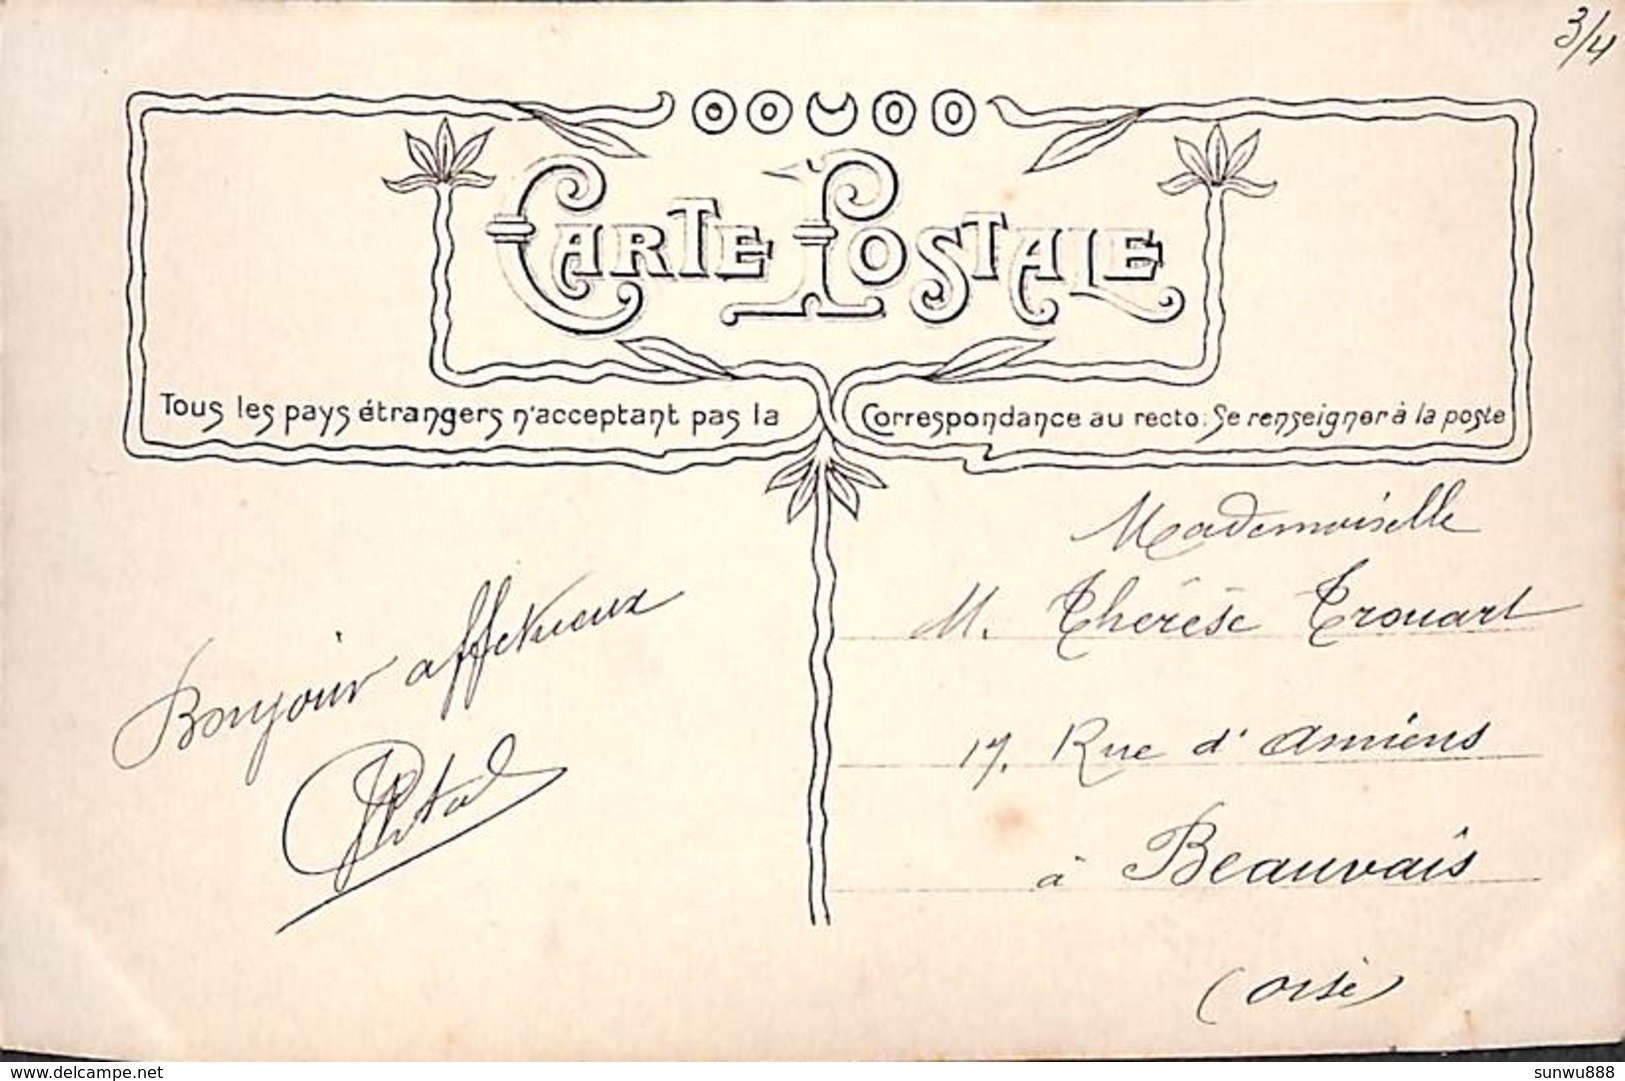 3/4
CARTE POSTALE
Tous les pays étrangers n'acceptant pas la Correspondance au recto: Se renseigner à la poste
Mademoiselle
M. Thérèse Trouart
17, Rue d'Amiens
à Beauvais
(Oise)
Bonjour affectueux
delcampe.net
sunwu888